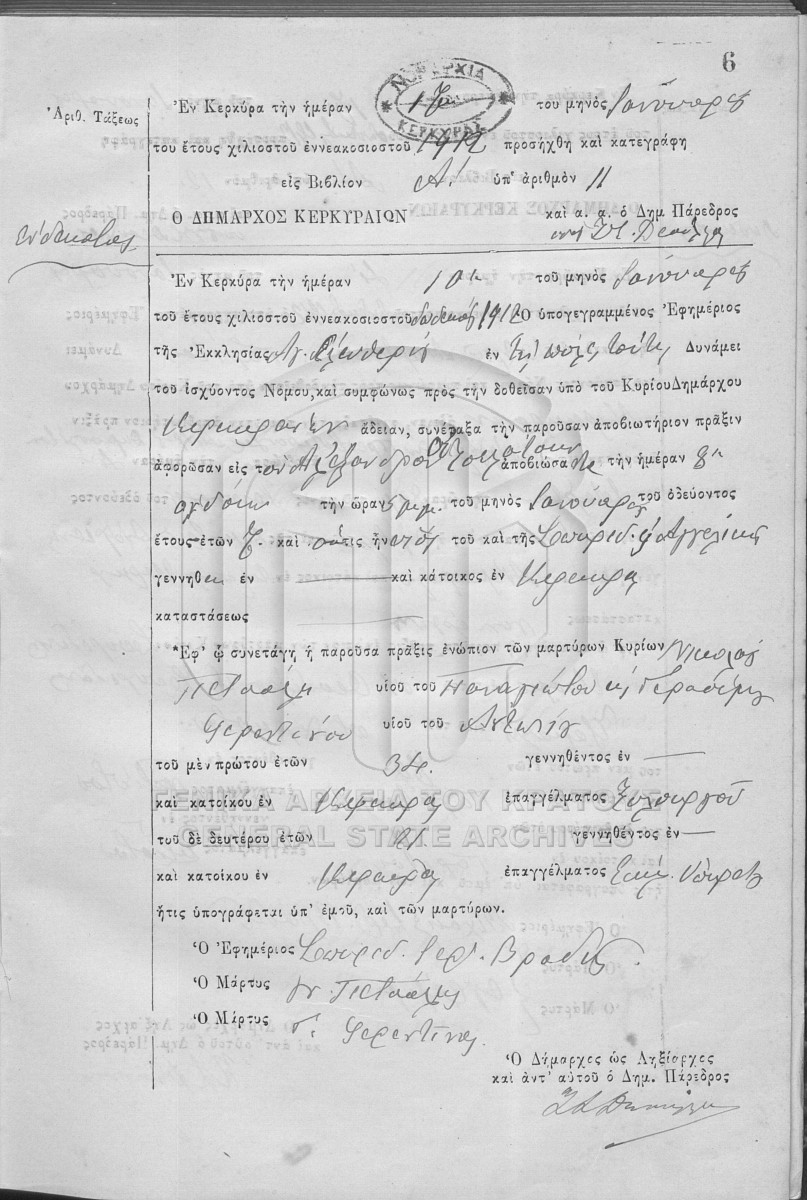 6
Ἀριθ. Τάξεως
ΝΟΜΑΡΧΙΑ
ΚΕΡΚΥΡΑΣ
Ἐν Κερκύρα τὴν ἡμέραν του μηνὸς Ἰανουαρίου
του ἔτους χιλιοστοῦ ἐννεακοσιοστοῦ 1912 προσήχθη καὶ κατεγράφη
εἰς Βιβλίον Α! ὑπ' ἀριθμὸν 11
Ο ΔΗΜΑΡΧΟΣ ΚΕΡΚΥΡΑΙΩΝ καὶ α. α. ὁ Δημ Πάρεδρος
ἑνδέκατος
Ἐν Κερκύρα τὴν ἡμέραν 10η τοῦ μηνὸς Ἰανουαρίου
τοῦ ἔτους χιλιοστοῦ ἐννεακοσιοστοῦ δωδεκάτου 1912 Ὁ ὑπογεγραμμένος Ἐφημέριος
τῆς Ἐκκλησίας Ἁγ. Ἐλευθερίου ἐν τῇ πόλει ταύτῃ Δυνάμει
τοῦ ἰσχύοντος Νόμου, καὶ συμφώνως πρὸς τὴν δοθεῖσαν ὑπὸ τοῦ Κυρίου Δημάρχου
Κερκυραίων ἄδειαν, συνέταξα τὴν παροῦσαν ἀποβιωτήριον πρᾶξιν
ἀφορῶσαν εἰς τὸν Ἀλέξανδρον ἀποβιώσαντα τὴν ἡμέραν 8η
ὀγδόην τὴν ὥραν 5 μ.μ. τοῦ μηνὸς Ἰανουαρίου τοῦ ὁδεύοντος
ἔτους ἐτῶν καὶ ὅστις ἦν υἱὸς τοῦ καὶ τῆς Σπυρίδ. καὶ Ἀγγελικῆς
γεννηθεὶς ἐν καὶ κάτοικος ἐν Κερκύρα
καταστάσεως
Ἐφ' ᾧ συνετάγη ἡ παροῦσα πρᾶξις ἐνώπιον τῶν μαρτύρων Κυρίων Νικολάου
Πετσάλη υἱοῦ τοῦ Παναγιώτου καὶ Γερασίμου
Φερεντίνου υἱοῦ τοῦ Ἀντωνίου
τοῦ μὲν πρώτου ἐτῶν 34. γεννηθέντος ἐν
καὶ κατοίκου ἐν Κερκύρα ἐπαγγέλματος Ξυλουργοῦ
τοῦ δὲ δευτέρου ἐτῶν γεννηθέντος ἐν
καὶ κατοίκου ἐν Κερκύρα ἐπαγγέλματος Ἐκκλ. Ὑπηρέτου
ἥτις ὑπογράφεται ὑπ' ἐμοῦ, καὶ τῶν μαρτύρων.
Ὁ Ἐφημέριος Σπυρίδ. Ἱερ. Βραδῆς.
Ὁ Μάρτυς Ν. Πετσάλης
Ὁ Μάρτυς Γ. Φερεντίνος
Ὁ Δήμαρχος ὡς Ληξίαρχος
καὶ ἀντ' αὐτοῦ ὁ Δημ. Πάρεδρος
ΓΕΝΙΚΑ ΑΡΧΕΙΑ ΤΟΥ ΚΡΑΤΟΥΣ
GENERAL STATE ARCHIVES